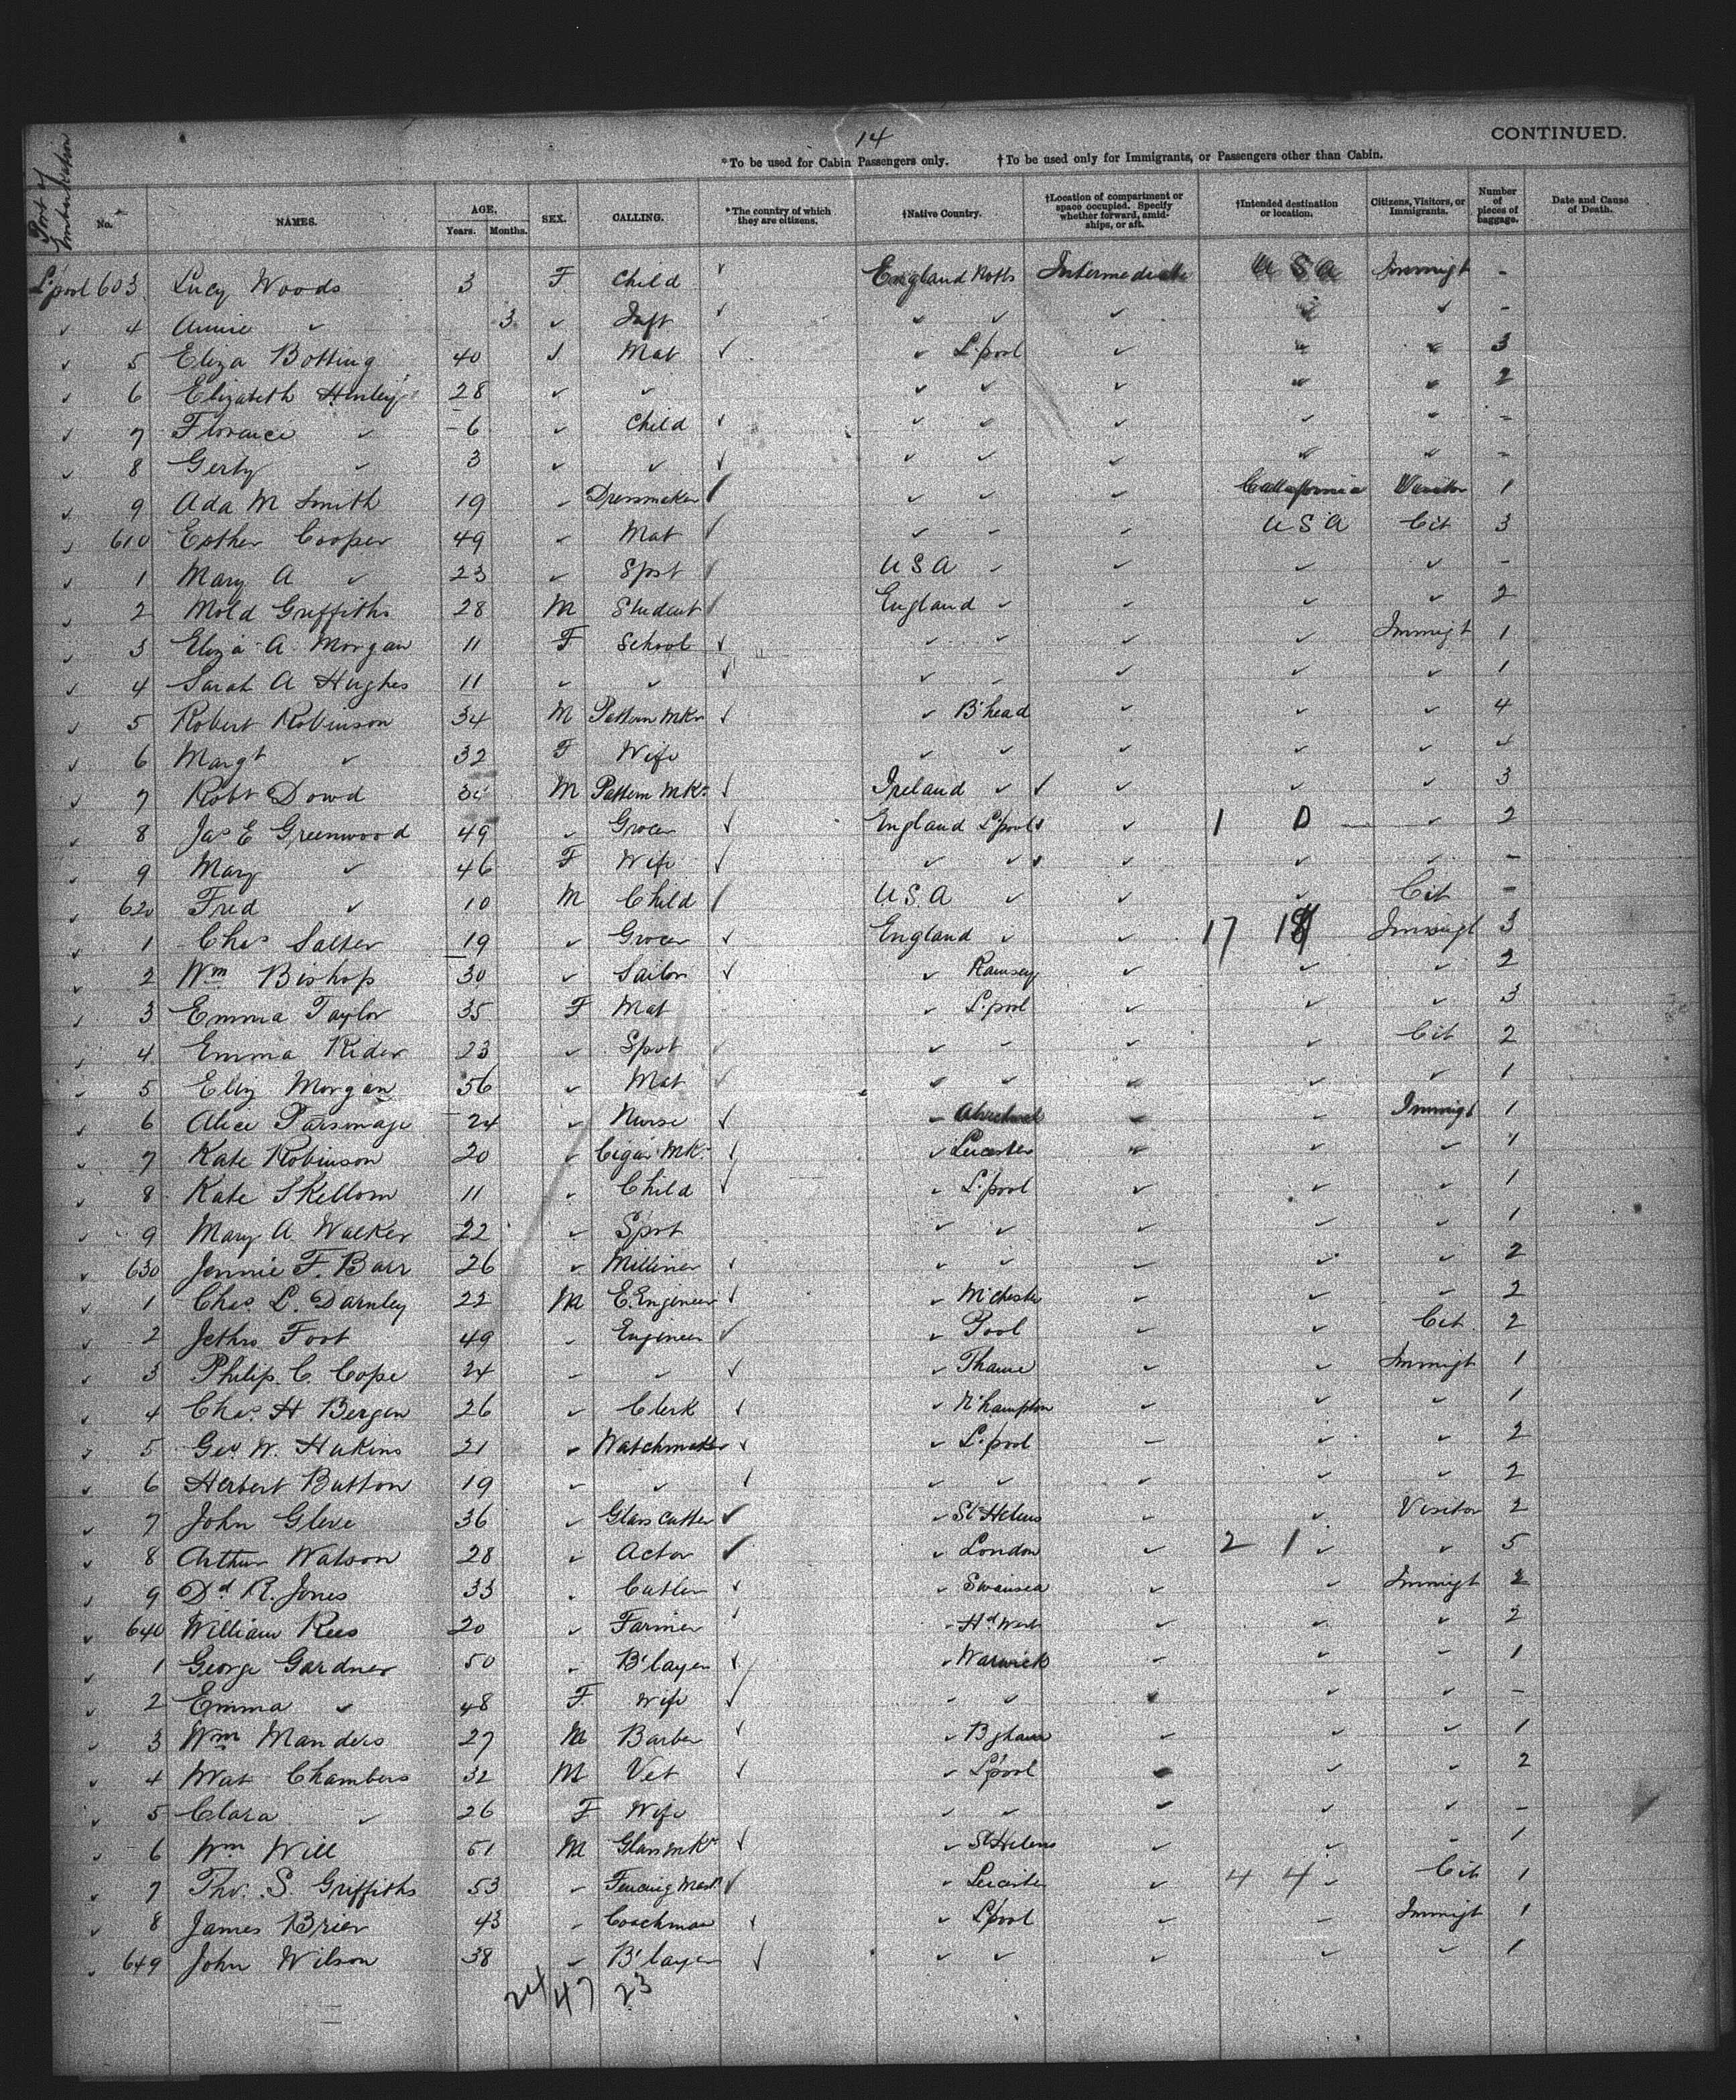 14
CONTINUED.
*To be used for Cabin Passengers only. †To be used only for Immigrants, or Passengers other than Cabin.
Port of Embarkation No. NAMES. AGE. Years. Months. SEX. CALLING. *The country of which they are citizens. †Native Country. †Location of compartment or space occupied. Specify whether forward, amidships, or aft. †Intended destination or location. Citizens, Visitors, or Immigrants. Number of pieces of baggage. Date and Cause of Death.
L'pool 603 Lucy Woods 3 F Child England Notts Intermediate U S A Immigt -
4 Annie 3 Inft -
5 Eliza Botting 40 Mat L'pool 3
6 Elizabeth Henley 28 2
7 Florence 6 Child -
8 Gerty 3 -
9 Ada M Smith 19 Dressmaker California Visitor 1
610 Esther Cooper 49 Mat U S A Cit 3
1 Mary A 23 Spst U S A -
2 Mold Griffiths 28 M Student England 2
3 Eliza A Morgan 11 F School Immigt 1
4 Sarah A Hughes 11 1
5 Robert Robinson 34 M Pattern Mkr B'head 4
6 Margt 32 F Wife
7 Robt Dowd M Pattern Mkr Ireland 3
8 Jas E Greenwood 49 Grocer England L'pool 1 0 2
9 Mary 46 F Wife -
620 Fred 10 M Child U S A Cit -
1 Chas Salter 19 Grocer England 17 Immigt 3
2 Wm Bishop 30 Sailor Ramsey 2
3 Emma Taylor 35 F Mat L'pool 3
4 Emma Rider 23 Spst Cit 2
5 Eliz Morgan 56 Mat 1
6 Alice Parsonage 24 Nurse Immigt 1
7 Kate Robinson 20 Cigar Mkr Leicester 1
8 Kate Skellorn 11 Child L'pool 1
9 Mary A. Walker 22 Spst 1
630 Jennie F. Barr 26 Milliner 2
1 Chas. L. Darnley 22 M E. Engineer M'chester 2
2 Jethro Foot 49 Engineer Pool Cit 2
3 Philip. C. Cope 24 Thame Immigt 1
4 Chas. H Bergen 26 Clerk N'hampton 1
5 Geo. W. Hakins 21 Watchmaker L'pool 2
6 Herbert Button 19 2
7 John Gleve 36 Glass Cutter St Helens Visitor 2
8 Arthur Watson 28 Actor London 2 1 5
9 Dd R. Jones 33 Cutler Swansea Immigt 2
640 William Rees 20 Farmer Hd West 2
1 George Gardner 50 B'layer Warwick 1
2 Emma 48 F Wife -
3 Wm Manders 27 M Barber B'ham 1
4 Wat Chambers 32 M Vet L'pool 2
5 Clara 26 F Wife -
6 Wm Will 51 M Glass mkr St Helens 1
7 Tho. S. Griffiths 53 Fencing Mast. Leicester 4 4 Cit 1
8 James Brier 43 Coachman L'pool Immigt 1
649 John Wilson 38 B'layer 1
24 47 23